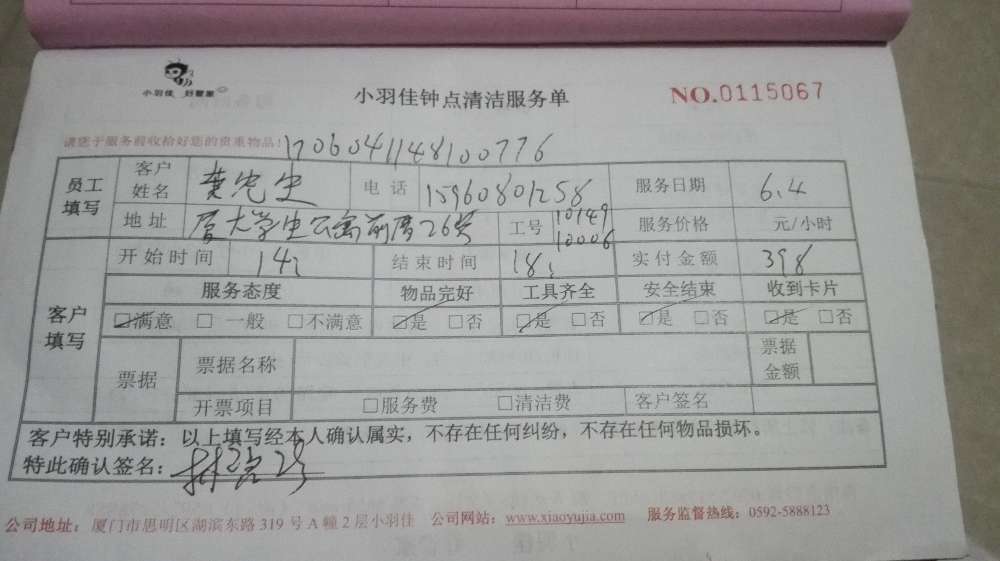 小羽佳 好管家
小羽佳钟点清洁服务单
NO.0115067
请您于服务前收拾好您的贵重物品! 1706041148100776
员工填写
客户姓名 龚先生 电话 15960801258 服务日期 6.4
地址 厦大学生公寓前厝26号 工号 10149 10006 服务价格 元/小时
客户填写
开始时间 14: 结束时间 18: 实付金额 398
服务态度 物品完好 工具齐全 安全结束 收到卡片
☑满意 □一般 □不满意 ☑是 □否 ☑是 □否 ☑是 □否 ☑是 □否
票据 票据名称 票据金额
开票项目 □服务费 □清洁费 客户签名
客户特别承诺:以上填写经本人确认属实,不存在任何纠纷,不存在任何物品损坏。
特此确认签名:
公司地址:厦门市思明区湖滨东路319号A幢2层小羽佳 公司网站:www.xiaoyujia.com 服务监督热线:0592-5888123